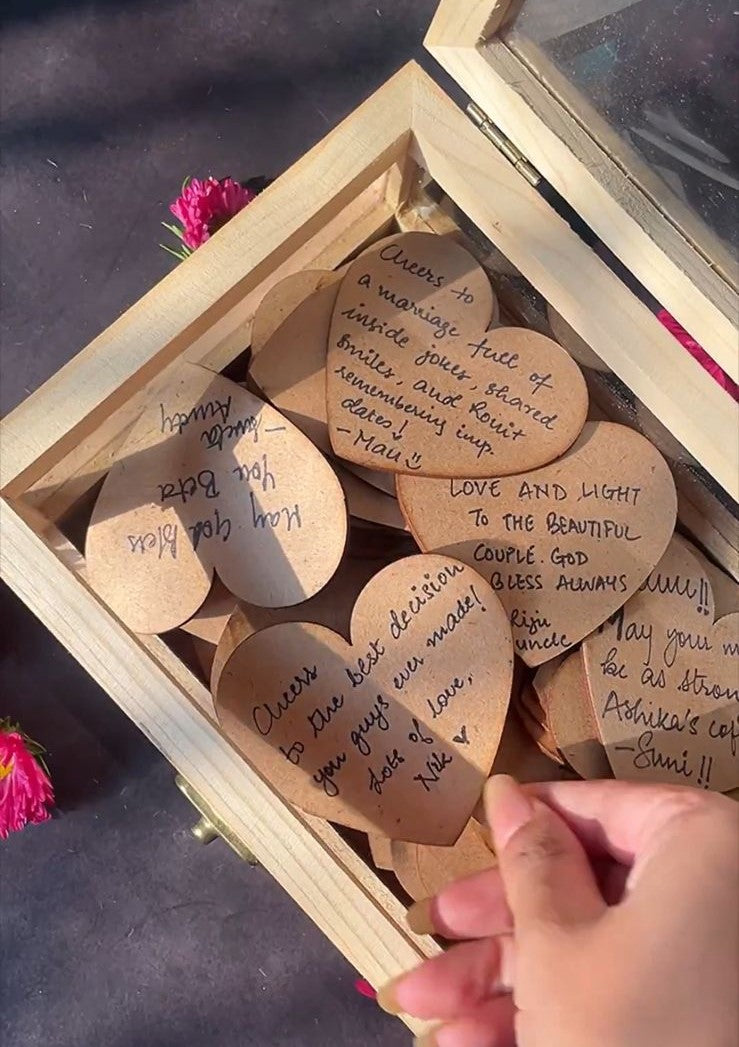 Cheers to
a marriage full of
inside jokes, shared
smiles, and Rohit
remembering imp.
dates!
- Mau
May God Bless
You Beta
LOVE AND LIGHT
TO THE BEAUTIFUL
COUPLE. GOD
BLESS ALWAYS
Riju
uncle
Cheers
to the best decision
you guys ever made!
Lots of love,
Nik
May your m
be as stron
Ashika's cof
- Suni!!